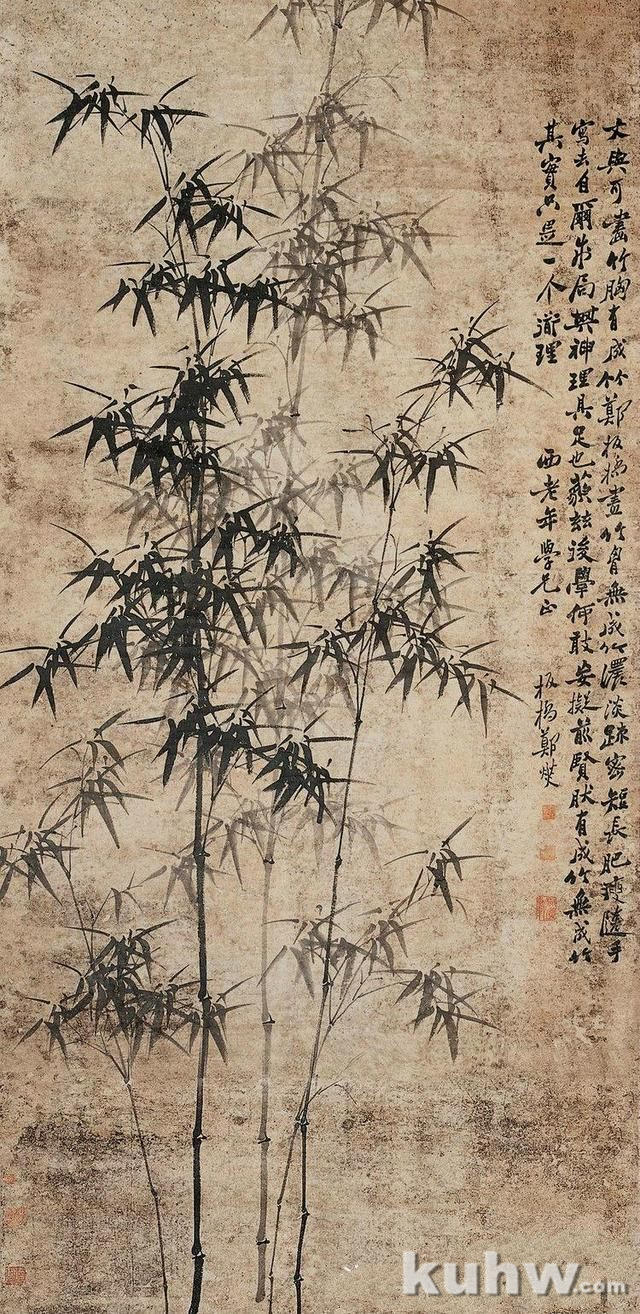 文與可畫竹胸有成竹鄭板橋畫竹胷無成竹濃淡疎密短長肥瘦隨手
寫去自爾成局其神理具足也藐兹後學何敢妄擬前賢肰有成竹無成竹
其實只是一个道理
酉老年學兄正
板橋鄭燮
kuhw.com